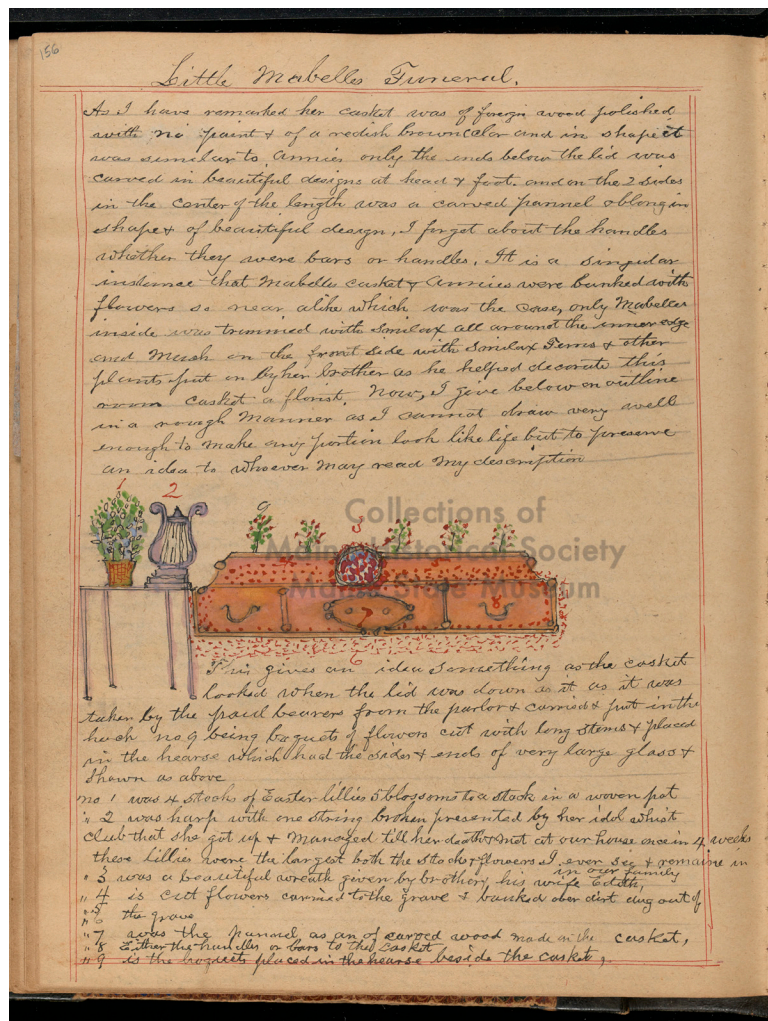 156
Little Mabelles Funeral.
As I have remarked her casket was of foreign wood polished
with no paint & of a redish brown color and in shape it
was similar to Annies only the ends below the lid was
carved in beautiful designs at head & foot. and on the 2 sides
in the center of the length was a carved pannel oblong in
shape & of beautiful design, I forget about the handles
whether they were bars or handles, It is a singular
instance that Mabelles casket & Annies were banked with
flowers so near alike which was the case, only Mabelles
inside was trimmed with Smilax all around the inner edge
and much on the front side with Smilax Ferns & other
plants put on by her brother as he helped decorate this
room casket a florist. Now, I give below an outline
in a rough manner as I cannot draw very well
enough to make any portion look like life but to preserve
an idea to whoever may read my description
1 2 9 3
Collections of
Maine Historical Society
Maine State Museum
4
7 8
6
This gives an idea something as the casket
looked when the lid was down as it as it was
taken by the paul bearers from the parlor & carried & put in the
hach no 9 being boquets of flowers cut with long stems & placed
in the hearse which had the sides & ends of very large glass &
shown as above
no 1 was 4 stocks of Easter lillies 5 blossoms to a stock in a woven pot
" 2 was harp with one string broken presented by her idol whist
club that she got up & managed till her death & met at our house once in 4 weeks
these lillies were the largest both the stocks & flowers I ever see & remaine in
in our family
" 3 was a beautiful wreath given by brother, his wife Edith,
" 4 is cut flowers carried to the grave & banked over dirt dug out of
" 5
" 6 the grave
" 7 was the pannel as an of carved wood made on the casket,
" 8 Either the handles or bars to the casket
" 9 is the boquets placed in the hearse beside the casket,